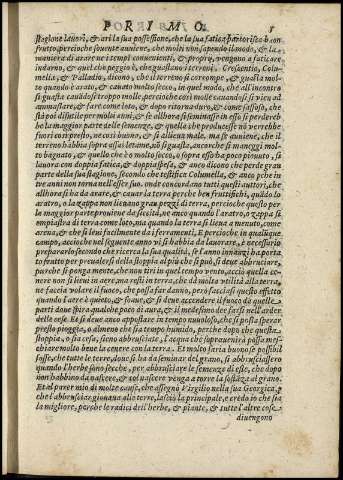 PRIMO. 5
stagione lauori, & ari la sua possessione, che la sua fatica partorisca buon
frutto, percioche souente auuiene, che molti non sapendo il modo, & la
maniera di arare ne i tempi conuenienti, & proprij, vengono a faticare
indarno, & quel ch'è peggio è, che guastano i terreni. Crescentio, Colu-
mella, & Palladio, dicono, che il terreno si corrompe, & guasta molto
quando è arato, & cauato molto secco, in quel modo, che all'incontro
si guasta cauādosi troppo molle, percioche così molle cauandosi si vien ad
ammassare, & fare come loto, & dopo ritorna duro, & come sassoso, che
stà poi disutile per molti anni, & se allhora si seminasse in esso si perdereb
be la maggior parte delle semenze, & quella che producesse nō verrebbe
fuori così presto, ne così buono, & si allieua male. ma se auuiene, che il
terreno habbia sopra assai letame, nō si guasta, ancorche si maneggi mol-
to bagnato, & quello che è molto secco, o sopra esso ha poco piouuto, si
lauora con doppia fatica, & doppia spesa, & anco dicono che perde gran
parte della sua stagione, secondo che testifica Columella, & anco pche in
tre anni non torna nell'esser suo. onde concordano tutti questi auttori, che
allhora si ha da arare, & cauar la terra perche ben fruttifichi, quādo lo
aratro, o la zappa non lieuano grau pezzi di terra, percioche questo per
la maggior parte prouiene da siccità, ne anco quando l'aratro, o zappa si
empiastra di terra come loto, ma quando la terra si liena a menuto, come
arena, & che si leui facilmente da i ferramenti, E percioche in qualunque
campo, accioche nel seguente anno vi si habbia da lauorare, è necessario
prepararlo secondo che ricerca la sua qualità, se l'anno innanzi ha porta
to frutto per preualersi della stoppia al più che si può si deue abbruciare,
purche si ponga mente, che non tiri in quel tempo vento, acciò quella ce-
nere non si lieui in aere, ma resti in terra, che dà molta vtilità alla terra,
ne faccia volare il fuoco, che possa far danno, però facciasi questo effetto
quando l'aere è quieto, & soaue, & si deue accendere il fuoco da quelle
parti doue spira qualche poco di aura, & il medesimo dee farsi nell'arder
delle oste. E si deue anco appostare in tempo nuuoloso, che si possa sperar
presto pioggia, o almeno che sia tempo humido, perche dopo che questa
stoppia, o sia cesa, sieno abbrusciate, l'acqua che soprauerrà possa mes-
chiare molto bene la cenere con la terra. Et molto saria buono se possibil
fosse, che tutte le terre, doue si ha da seminar del grano, si abbrusciassero
quando l'herbe sono secche, per abbrusciare le semenze di esse, che dopo
non habbino da nascere, & col nascere venga a torre la sostāza al grano.
Et al parer mio di molte cause, che assegnò Virgilio nella sua Georgica, p
che l'abbrusciare giouaua alle terre, lasciò la principale, e credo io che sia
la migliore, perche le radici dell'herbe, & piante, & tutte l'altre cose
diuengono